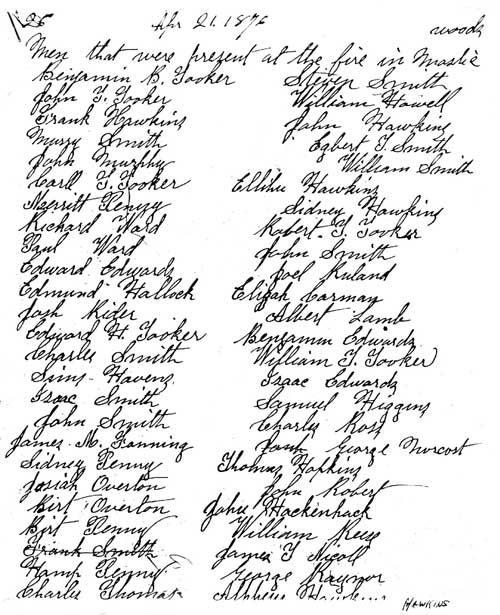 25 Apr 21. 1876
woods
Men that were present at the fire in Mastic
Benjamin B. Tooker
John T. Tooker
Frank Hawkins
Murry Smith
John Murphy
Carll T. Tooker
Merritt Penny
Richard Ward
Paul Ward
Edward Edwards
Edmund Hallock
Josh Rider
Edward H. Tooker
Charles Smith
Sims Havens
Isaac Smith
John Smith
James M. Fanning
Sidney Penny
Josiah Overton
Birt Overton
Birt Penny
Frank Smith
Hamp Penny
Charles Thomas
Steven Smith
William Howell
John Hawkins
Egbert T. Smith
William Smith
Ellihu Hawkins
Sidney Hawkins
Robert T. Tooker
John Smith
Joel Ruland
Elijah Carman
Albert Lamb
Benjamin Edwards
William T. Tooker
Isaac Edwards
Samuel Higgins
Charles Ross
George Norcost
Thomas Hopkins
John Robert
John Hackenhack
William
James T Nicoll
George Raynor
Hawkins
HAWKINS